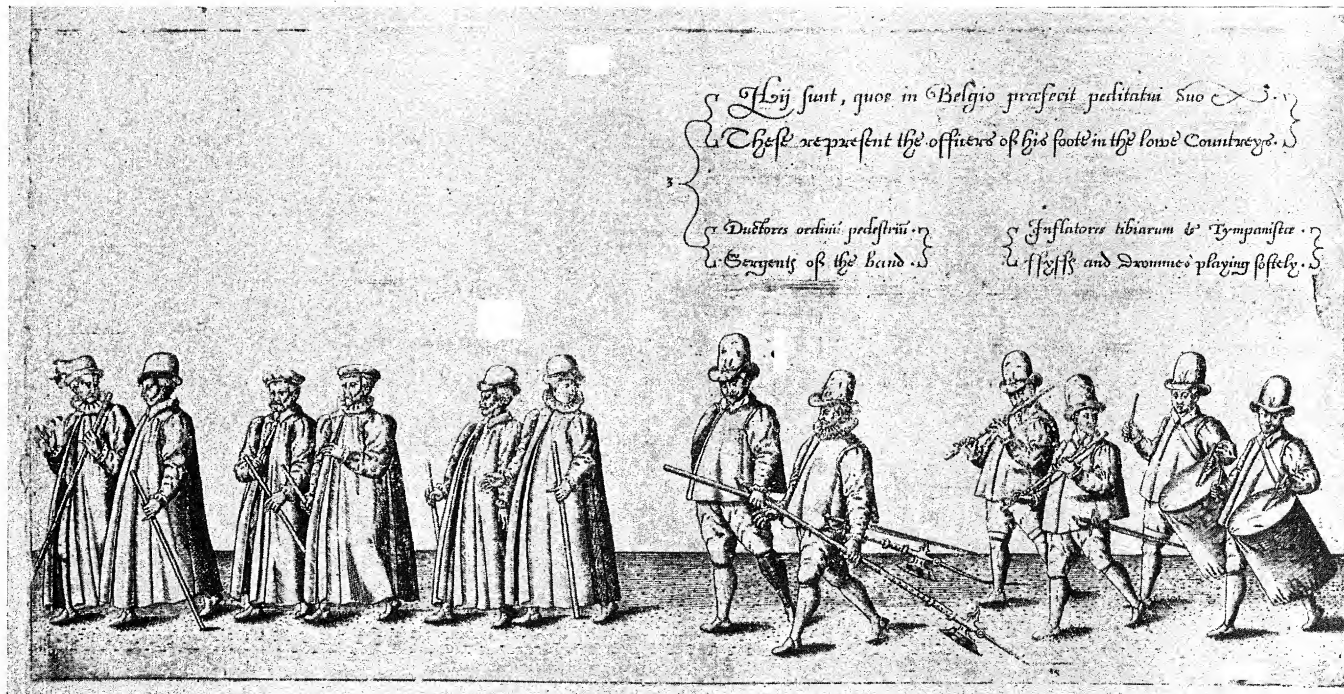 Hij sunt, quos in Belgio præfecit peditatui suo 5.
These represent the officers of his foote in the lowe Countreys.
3
Ductores ordinū pedestriū.
Sergents of the band.
Inflatores tibiarum & Tympanistæ.
ffyffs and Drommes playing softely.